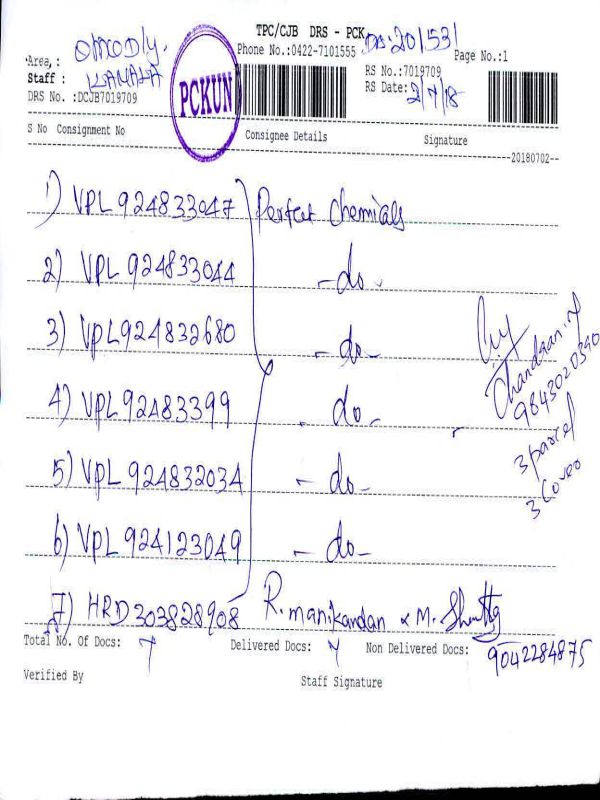 TPC/CJB DRS - PCK
Phone No.:0422-7101555
Page No.:1
Area,:
Staff : KAMALA
DRS No. :DCJB7019709
PCKUN
RS No.:7019709
RS Date: 2/7/18
S No Consignment No Consignee Details Signature
20180702
1) VPL 924833047 Perfect Chemicals
2) VPL 924833044 -do-
3) VPL 924832680 -do-
4) VPL 92483399 -do-
5) VPL 924832034 -do-
6) VPL 924123049 -do-
7) HRD 303828908 R. manikandan & M.
9843020390
3 parcel
3 Cover
Total No. Of Docs: 7 Delivered Docs: 7 Non Delivered Docs:
9042284875
Verified By Staff Signature